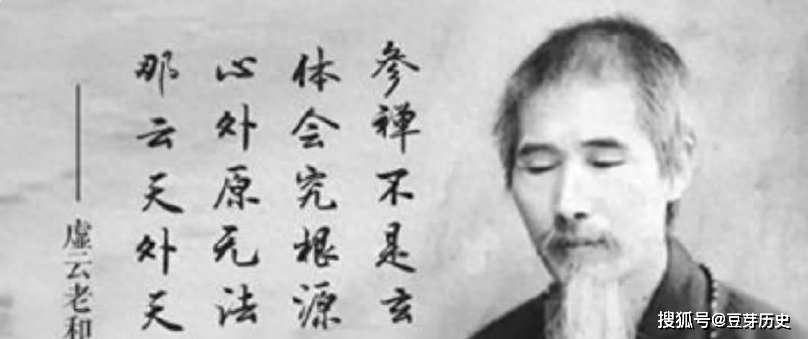 参禅不是玄
体会究根源
心外原无法
那云天外天
——虚云老和
搜狐号@豆芽历史